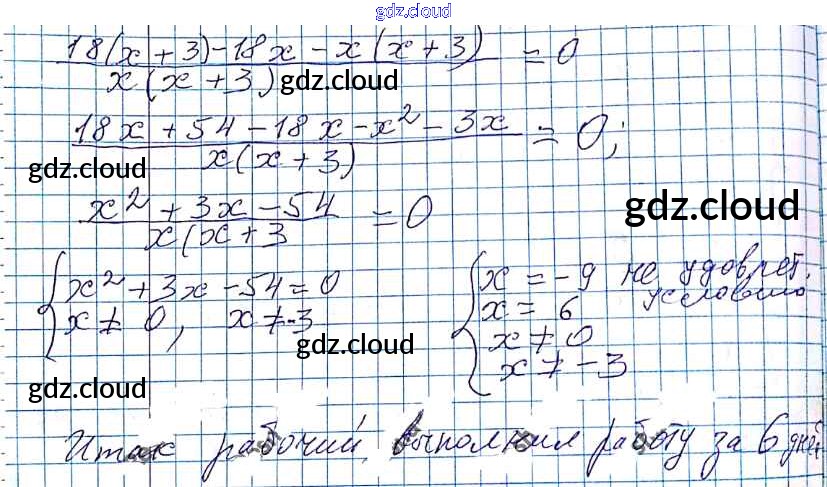 gdz.cloud
18(x+3)-18x-x(x+3) / x(x+3) = 0
gdz.cloud
18x+54-18x-x²-3x / x(x+3) = 0;
gdz.cloud
x²+3x-54 / x(x+3 = 0
gdz.cloud
{ x²+3x-54=0
x≠0, x≠-3
gdz.cloud
{ x=-9 не удовлет. условию
x=6
x≠0
x≠-3
gdz.cloud
Итак рабочий выполнил работу за 6 дней